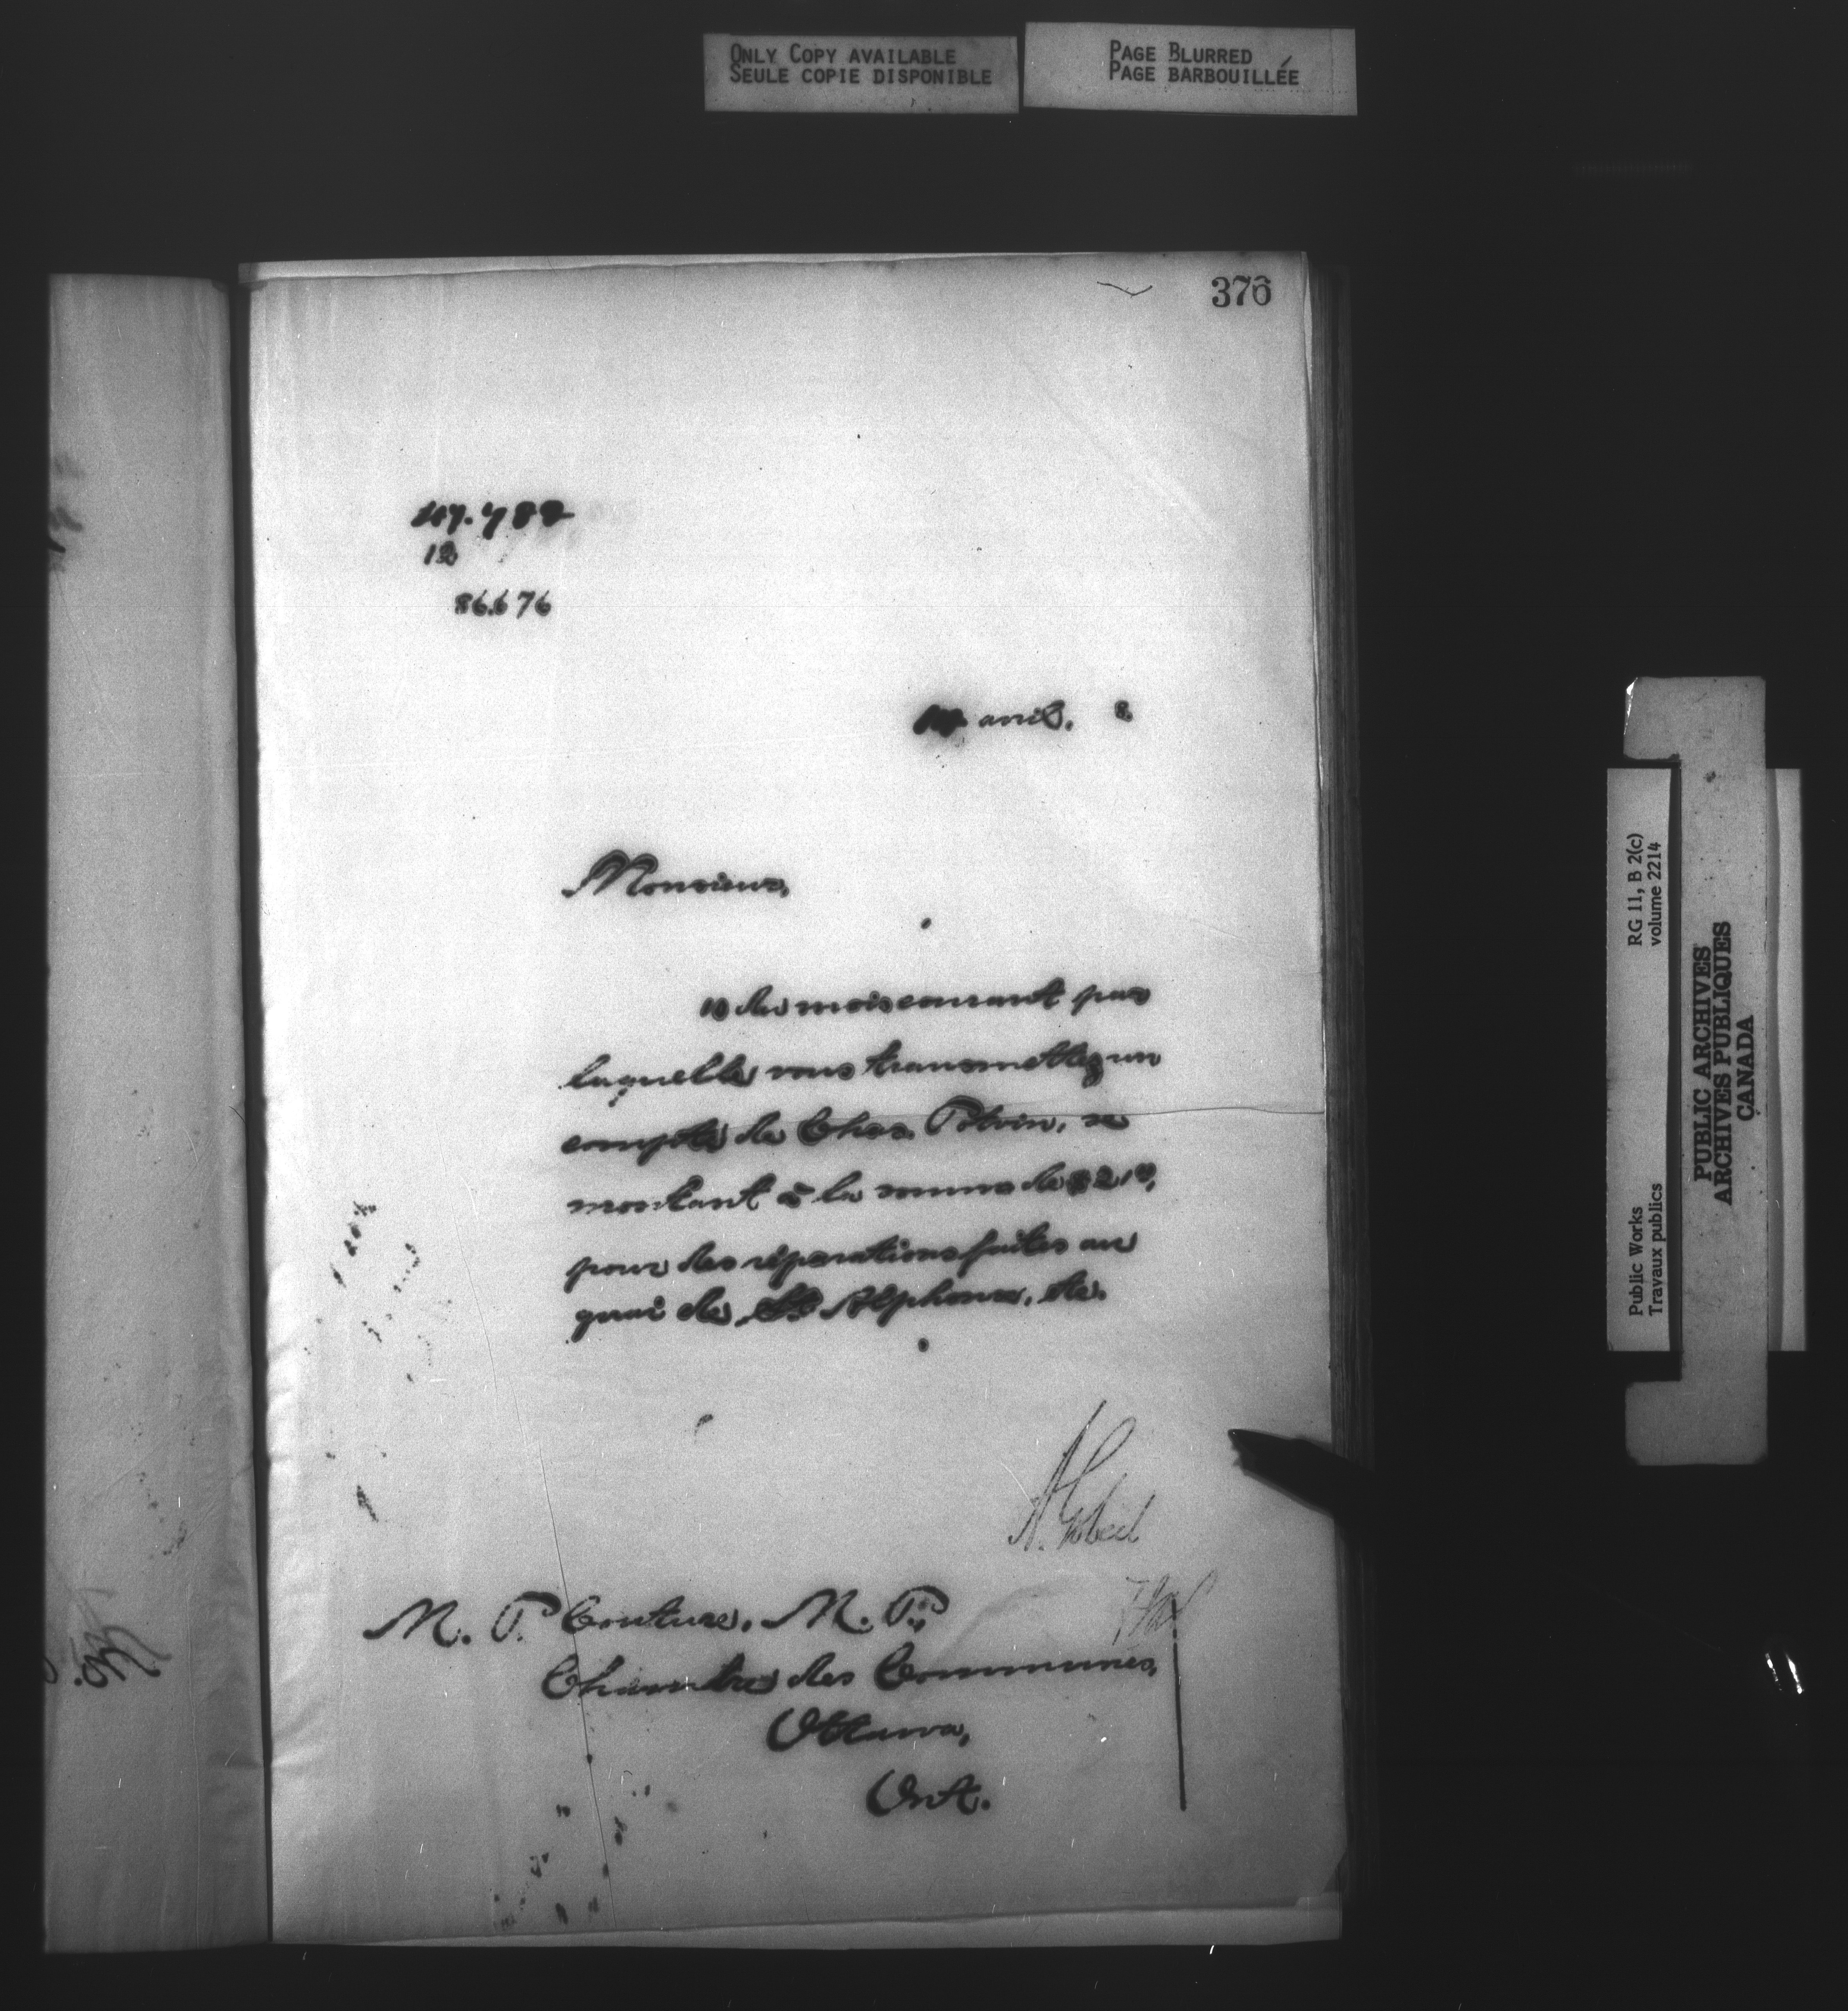 ONLY COPY AVAILABLE
SEULE COPIE DISPONIBLE
PAGE BLURRED
PAGE BARBOUILLÉE
376
86.676
avril. 8
Monsieur,
10 du mois courant par
laquelle vous transmettez un
compte de Chas. Potvin, se
montant à la somme de
pour des réparations faites au
quai de St Alphonse, etc.
A. Gobeil
M. P. Couture, M. P.,
Chambre des Communes,
Ottawa,
Ont.
RG 11, B 2(c)
volume 2214
Public Works
Travaux publics
PUBLIC ARCHIVES
ARCHIVES PUBLIQUES
CANADA